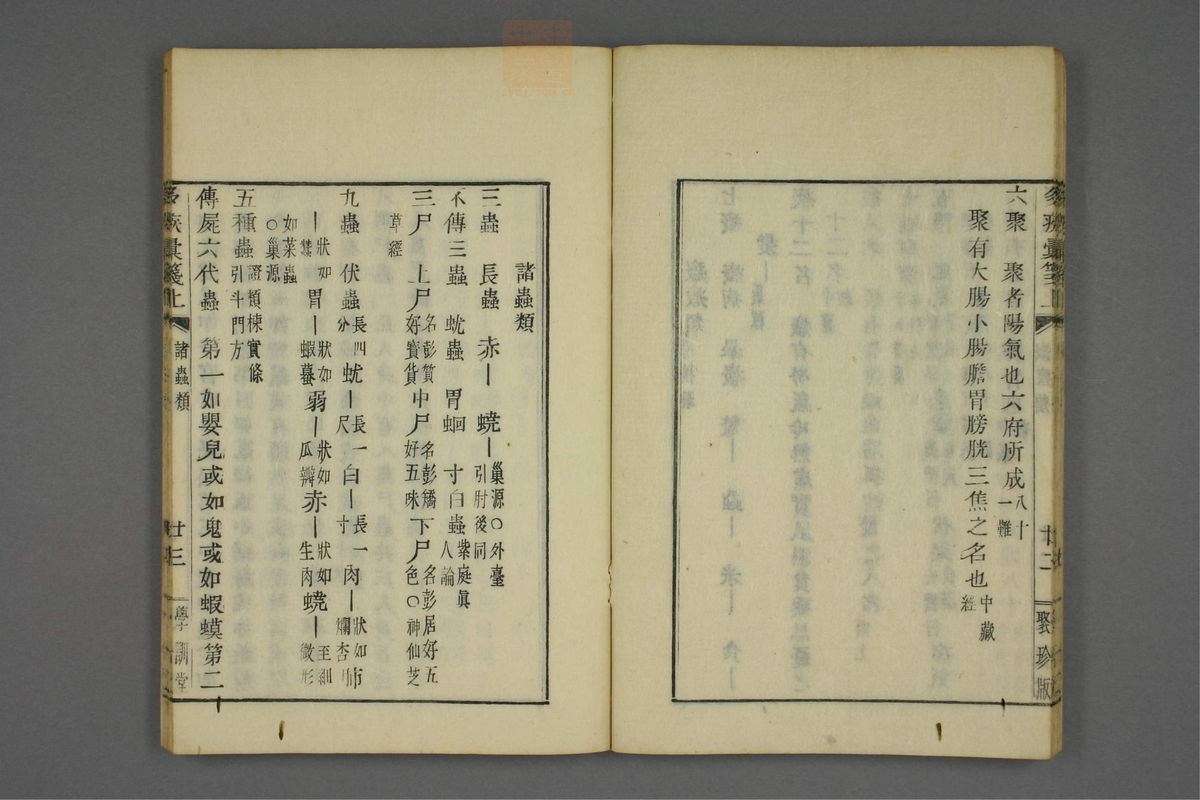 六聚　聚者陽氣也六府所成八十一難
聚有大腸小腸膽胃膀胱三焦之名也中藏經
廿二
聚珍版
諸蟲類
三蟲　長蟲　赤｜　蟯｜巢源〇外臺引肘後同
不傳三蟲　蚘蟲　胃蛔　寸白蟲紫庭眞人論
三尸　上尸名彭質好寶貨　中尸名彭矯好五味　下尸名彭居好五色〇神仙芝草經
九蟲　伏蟲長四分　蚘｜長一尺　白｜長一寸　肉｜狀如爛杏　肺｜狀如蠶　胃｜狀如蝦蟇　弱｜狀如瓜瓣　赤｜狀如生肉　蟯｜至細微形如菜蟲〇巢源
五種蟲證類楝實條引斗門方
傳屍六代蟲　第一如嬰兒或如鬼或如蝦蟆第二
彙箋上
諸蟲類
廿三
學訓堂